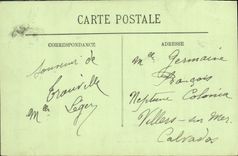 CARTE POSTALE
CORRESPONDANCE
Souvenir de
Trouville
Mlle Léger
ADRESSE
Mlle Germaine
François
Neptune Colonia
Villers-sur-Mer
Calvados